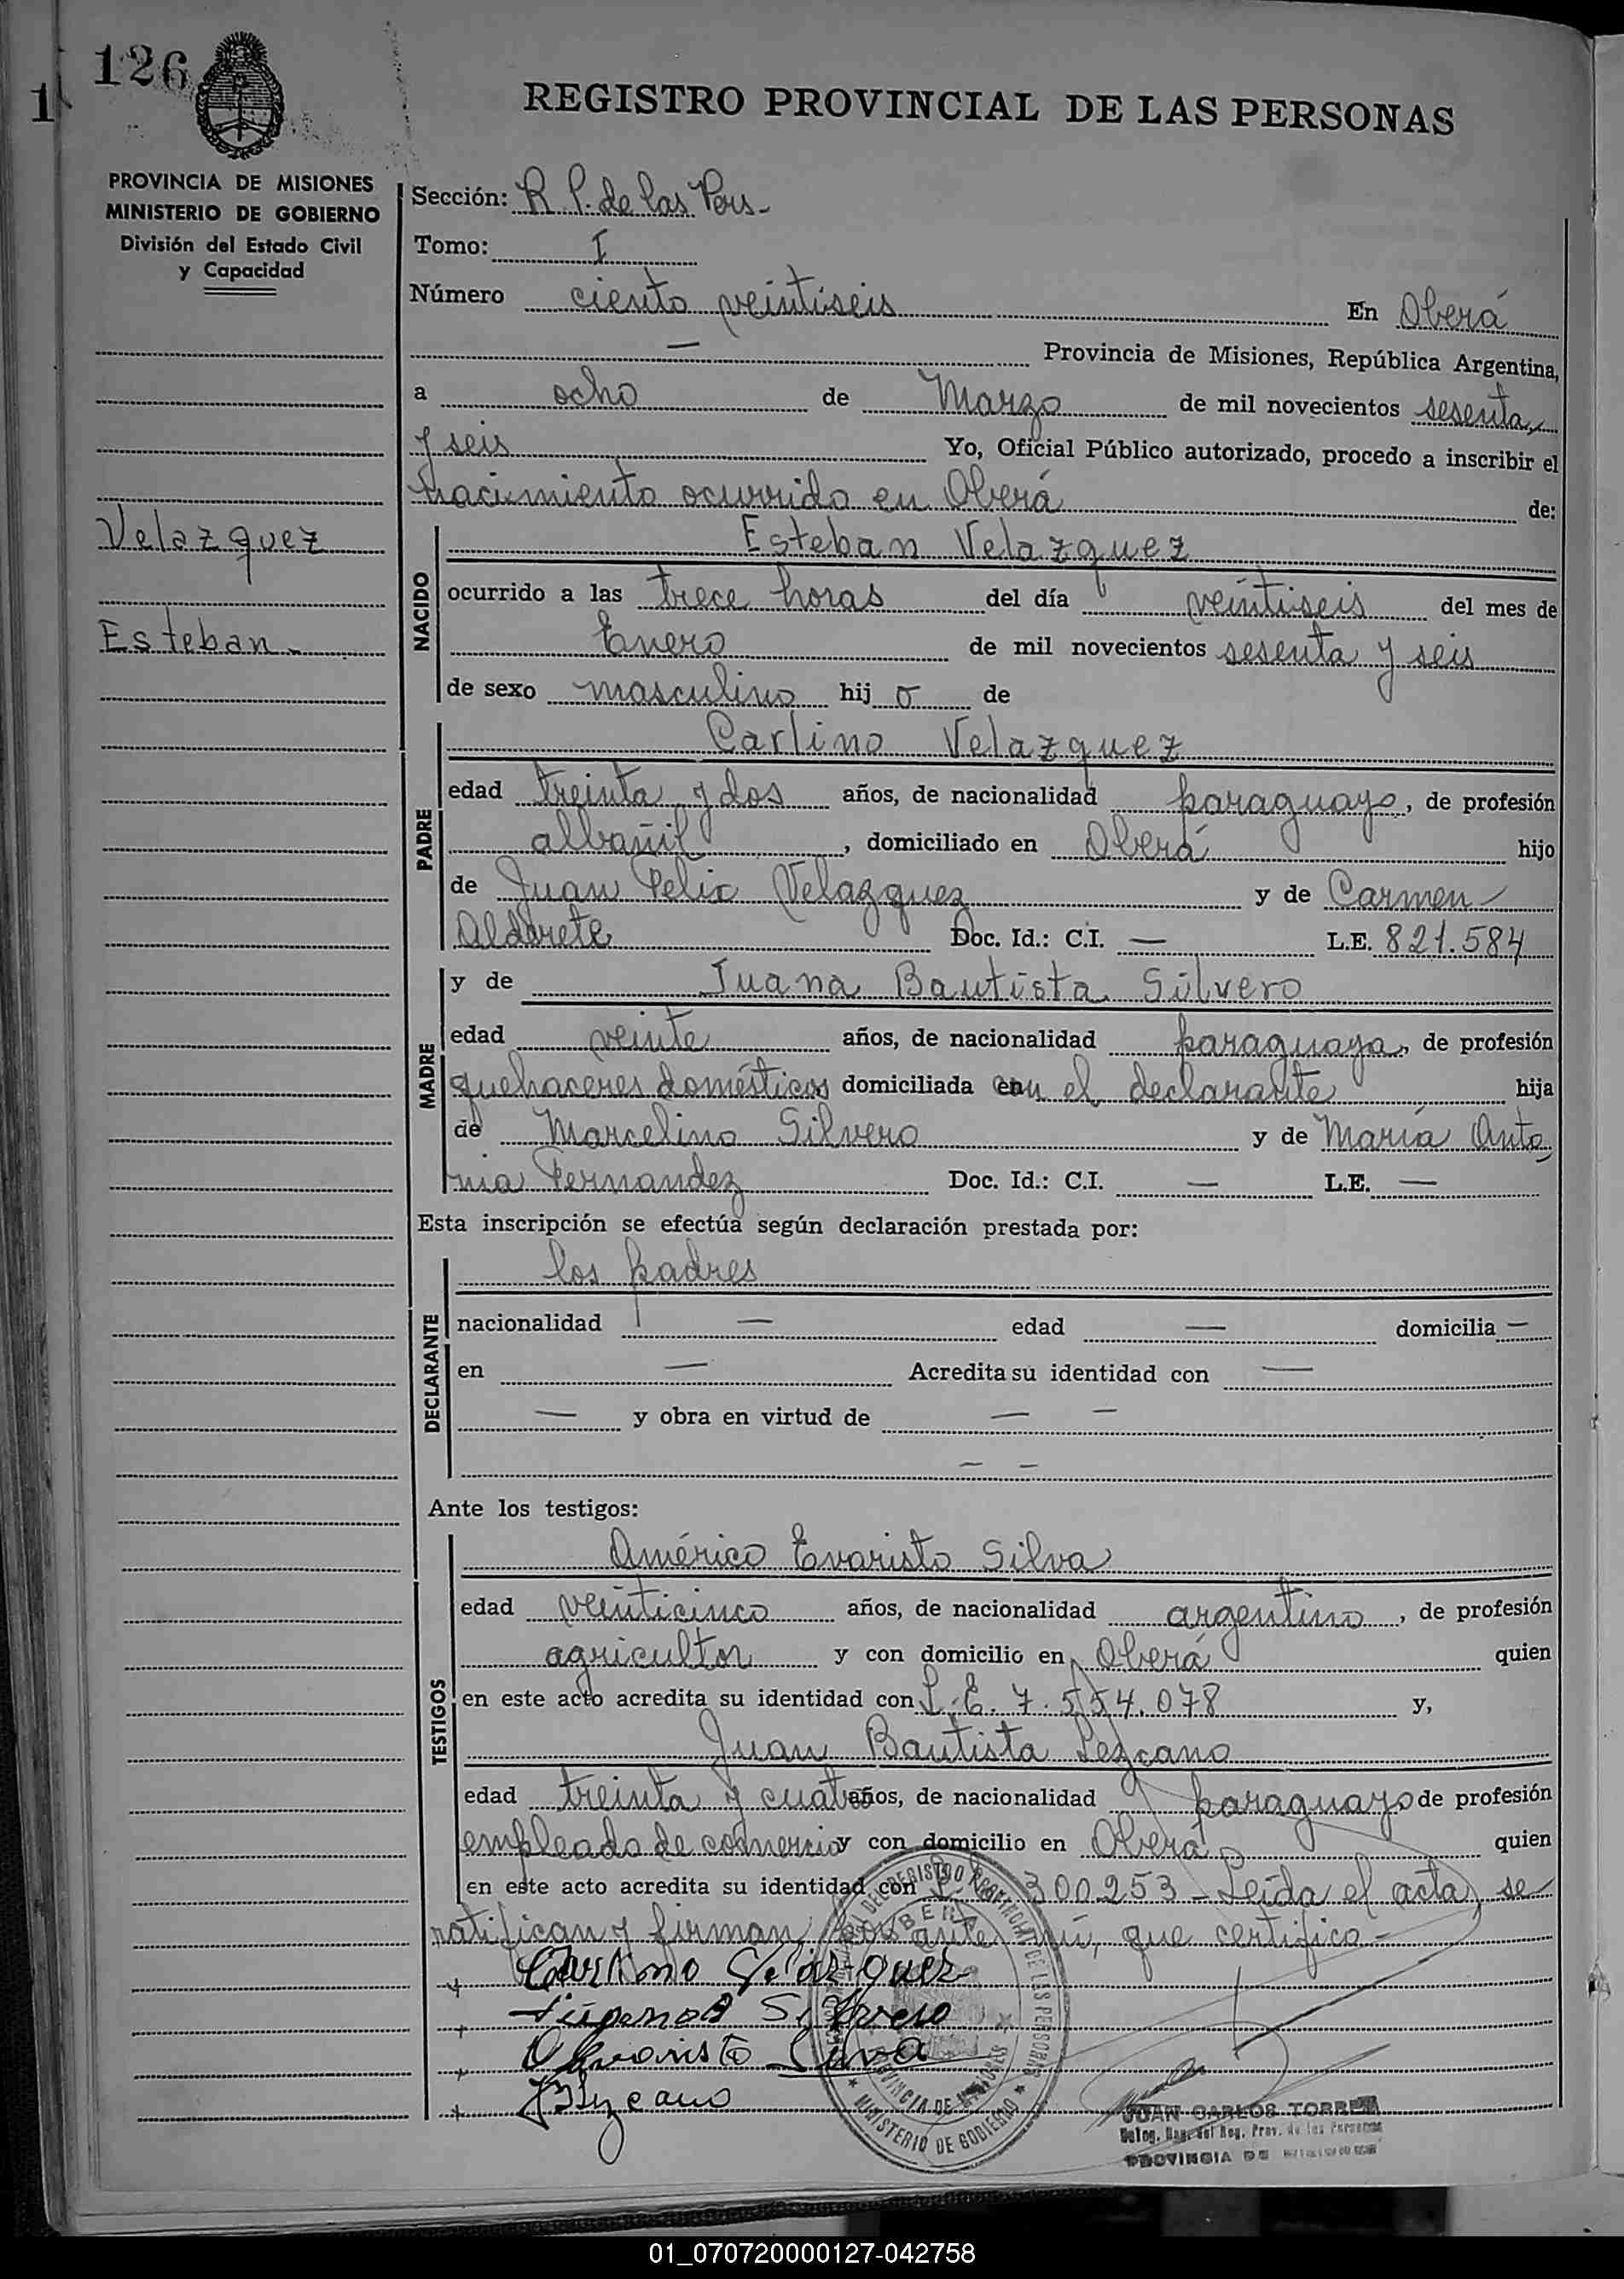 126
1
REGISTRO PROVINCIAL DE LAS PERSONAS
PROVINCIA DE MISIONES
MINISTERIO DE GOBIERNO
División del Estado Civil
y Capacidad
Sección: R. P. de las Pers.
Tomo: I
Número ciento veintiseis En Oberá
— Provincia de Misiones, República Argentina,
a ocho de Marzo de mil novecientos sesenta
y seis Yo, Oficial Público autorizado, procedo a inscribir el
nacimiento ocurrido en Oberá de:
Velazquez
Esteban
NACIDO
Esteban Velazquez
ocurrido a las trece horas del día veintiseis del mes de
Enero de mil novecientos sesenta y seis
de sexo masculino hijo de
PADRE
Carlino Velazquez
edad treinta y dos años, de nacionalidad paraguayo, de profesión
albañil, domiciliado en Oberá hijo
de Juan Felix Velazquez y de Carmen
Aldarete Doc. Id.: C.I. — L.E. 821.584
MADRE
y de Juana Bautista Silvero
edad veinte años, de nacionalidad paraguaya, de profesión
quehaceres domésticos domiciliada en el declarante hija
de Marcelino Silvero y de María Anto
nia Fernandez Doc. Id.: C.I. — L.E. —
Esta inscripción se efectúa según declaración prestada por:
DECLARANTE
los padres
nacionalidad — edad — domicilia —
en — Acredita su identidad con —
— y obra en virtud de — —
— —
Ante los testigos:
TESTIGOS
Américo Evaristo Silva
edad veinticinco años, de nacionalidad argentino, de profesión
agricultor y con domicilio en Oberá quien
en este acto acredita su identidad con L.E. 7.554.078 y,
Juan Bautista Lezcano
edad treinta y cuatro años, de nacionalidad paraguayo de profesión
empleado de comercio y con domicilio en Oberá quien
en este acto acredita su identidad con 300253 - Leída el acta, se
ratifican y firman ante mí, que certifico -
Carlino Velazquez
Silvero
Evaristo Silva
JBLezcano
MINISTERIO DE GOBIERNO
PROVINCIA DE MISIONES
OBERA
JUAN CARLOS TORRES
Reg. Prov. de las Personas
PROVINCIA DE MISIONES
01_070720000127-042758